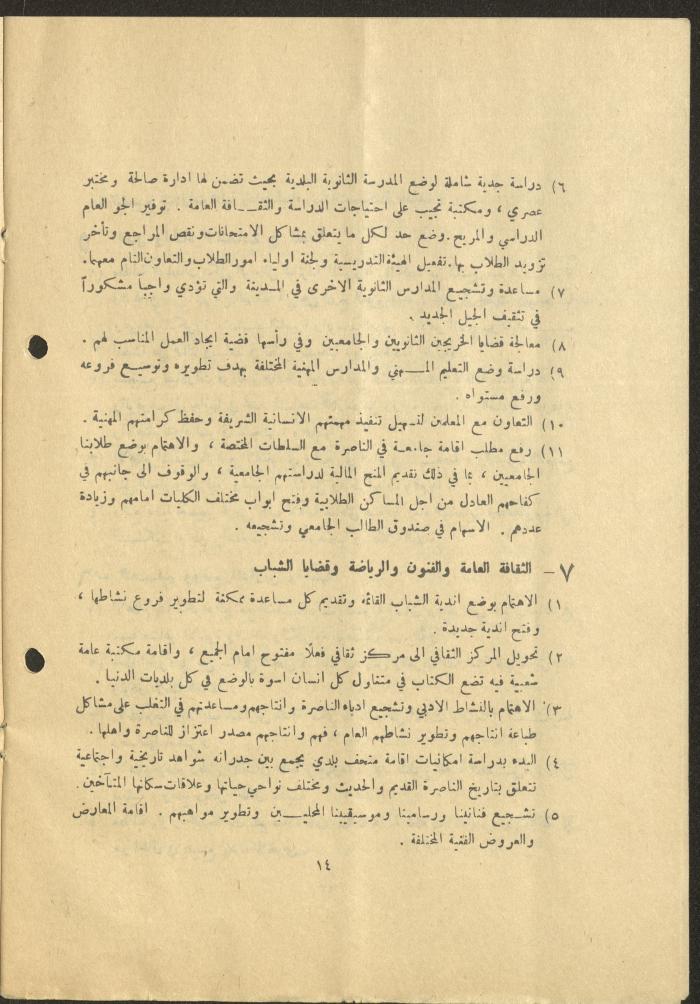 ٦) دراسة جدية شاملة لوضع المدرسة الثانوية البلدية بحيث تضمن لها ادارة صالحة ومختبر
عصري ، ومكتبة تجيب على احتياجات الدراسة والثقــافة العامة . توفير الجو العام
الدراسي والمريح . وضع حد لكل ما يتعلق بمشاكل الامتحانات ونقص المراجع وتأخر
تزويد الطلاب بها. تفعيل الهيئة التدريسية ولجنة اولياء امور الطلاب والتعاون التام معهما.
٧) مساعدة وتشجيع المدارس الثانوية الاخرى في المـدينة والتي تؤدي واجباً مشكوراً
في تثقيف الجيل الجديد .
٨) معالجة قضايا الخريجين الثانويين والجامعيين وفي رأسها قضية ايجاد العمل المناسب لهم .
٩) دراسة وضع التعليم المــهني والمدارس المهنية المختلفة بهدف تطويره وتوسيـع فروعه
ورفع مستواه .
١٠) التعاون مع المعلمين لتسهيل تنفيذ مهمتهم الانسانية الشريفة وحفظ كرامتهم المهنية .
١١) رفع مطلب اقامة جامعـة في الناصرة مع السلطات المختصة ، والاهتمام بوضع طلابنا
الجامعيين ، بما في ذلك تقديم المنح المالية لدراستهم الجامعية ، والوقوف الى جانبهم في
كفاحهم العادل من اجل المساكن الطلابية وفتح ابواب مختلف الكليات امامهم وزيادة
عددهم . الاسهام في صندوق الطالب الجامعي وتشجيعه .
٧ – الثقافة العامة والفنون والرياضة وقضايا الشباب
١) الاهتمام بوضع اندية الشباب القائمة وتقديم كل مساعدة ممكنة لتطوير فروع نشاطها ،
وفتح اندية جديدة .
٢) تحويل المركز الثقافي الى مركز ثقافي فعلاً مفتوح امام الجميع ، واقامة مكتبة عامة
شعبية فيه تضع الكتاب في متناول كل انسان اسوة بالوضع في كل بلديات الدنيا .
٣) الاهتمام بالنشاط الادبي وتشجيع ادباء الناصرة وانتاجهم ومساعدتهم في التغلب على مشاكل
طباعة انتاجهم وتطوير نشاطهم العام ، فهم وانتاجهم مصدر اعتزاز للناصرة واهلها .
٤) البدء بدراسة امكانيات اقامة متحف بلدي يجمع بين جدرانه شواهد تاريخية واجتماعية
تتعلق بتاريخ الناصرة القديم والحديث ومختلف نواحي حياتها وعلاقات سكانها المتآخين .
٥) تشـجيع فنانينا ورسامينا وموسيقيينا المحليــين وتطوير مواهبهم . اقامة المعارض
والعروض الفنية المختلفة .
١٤